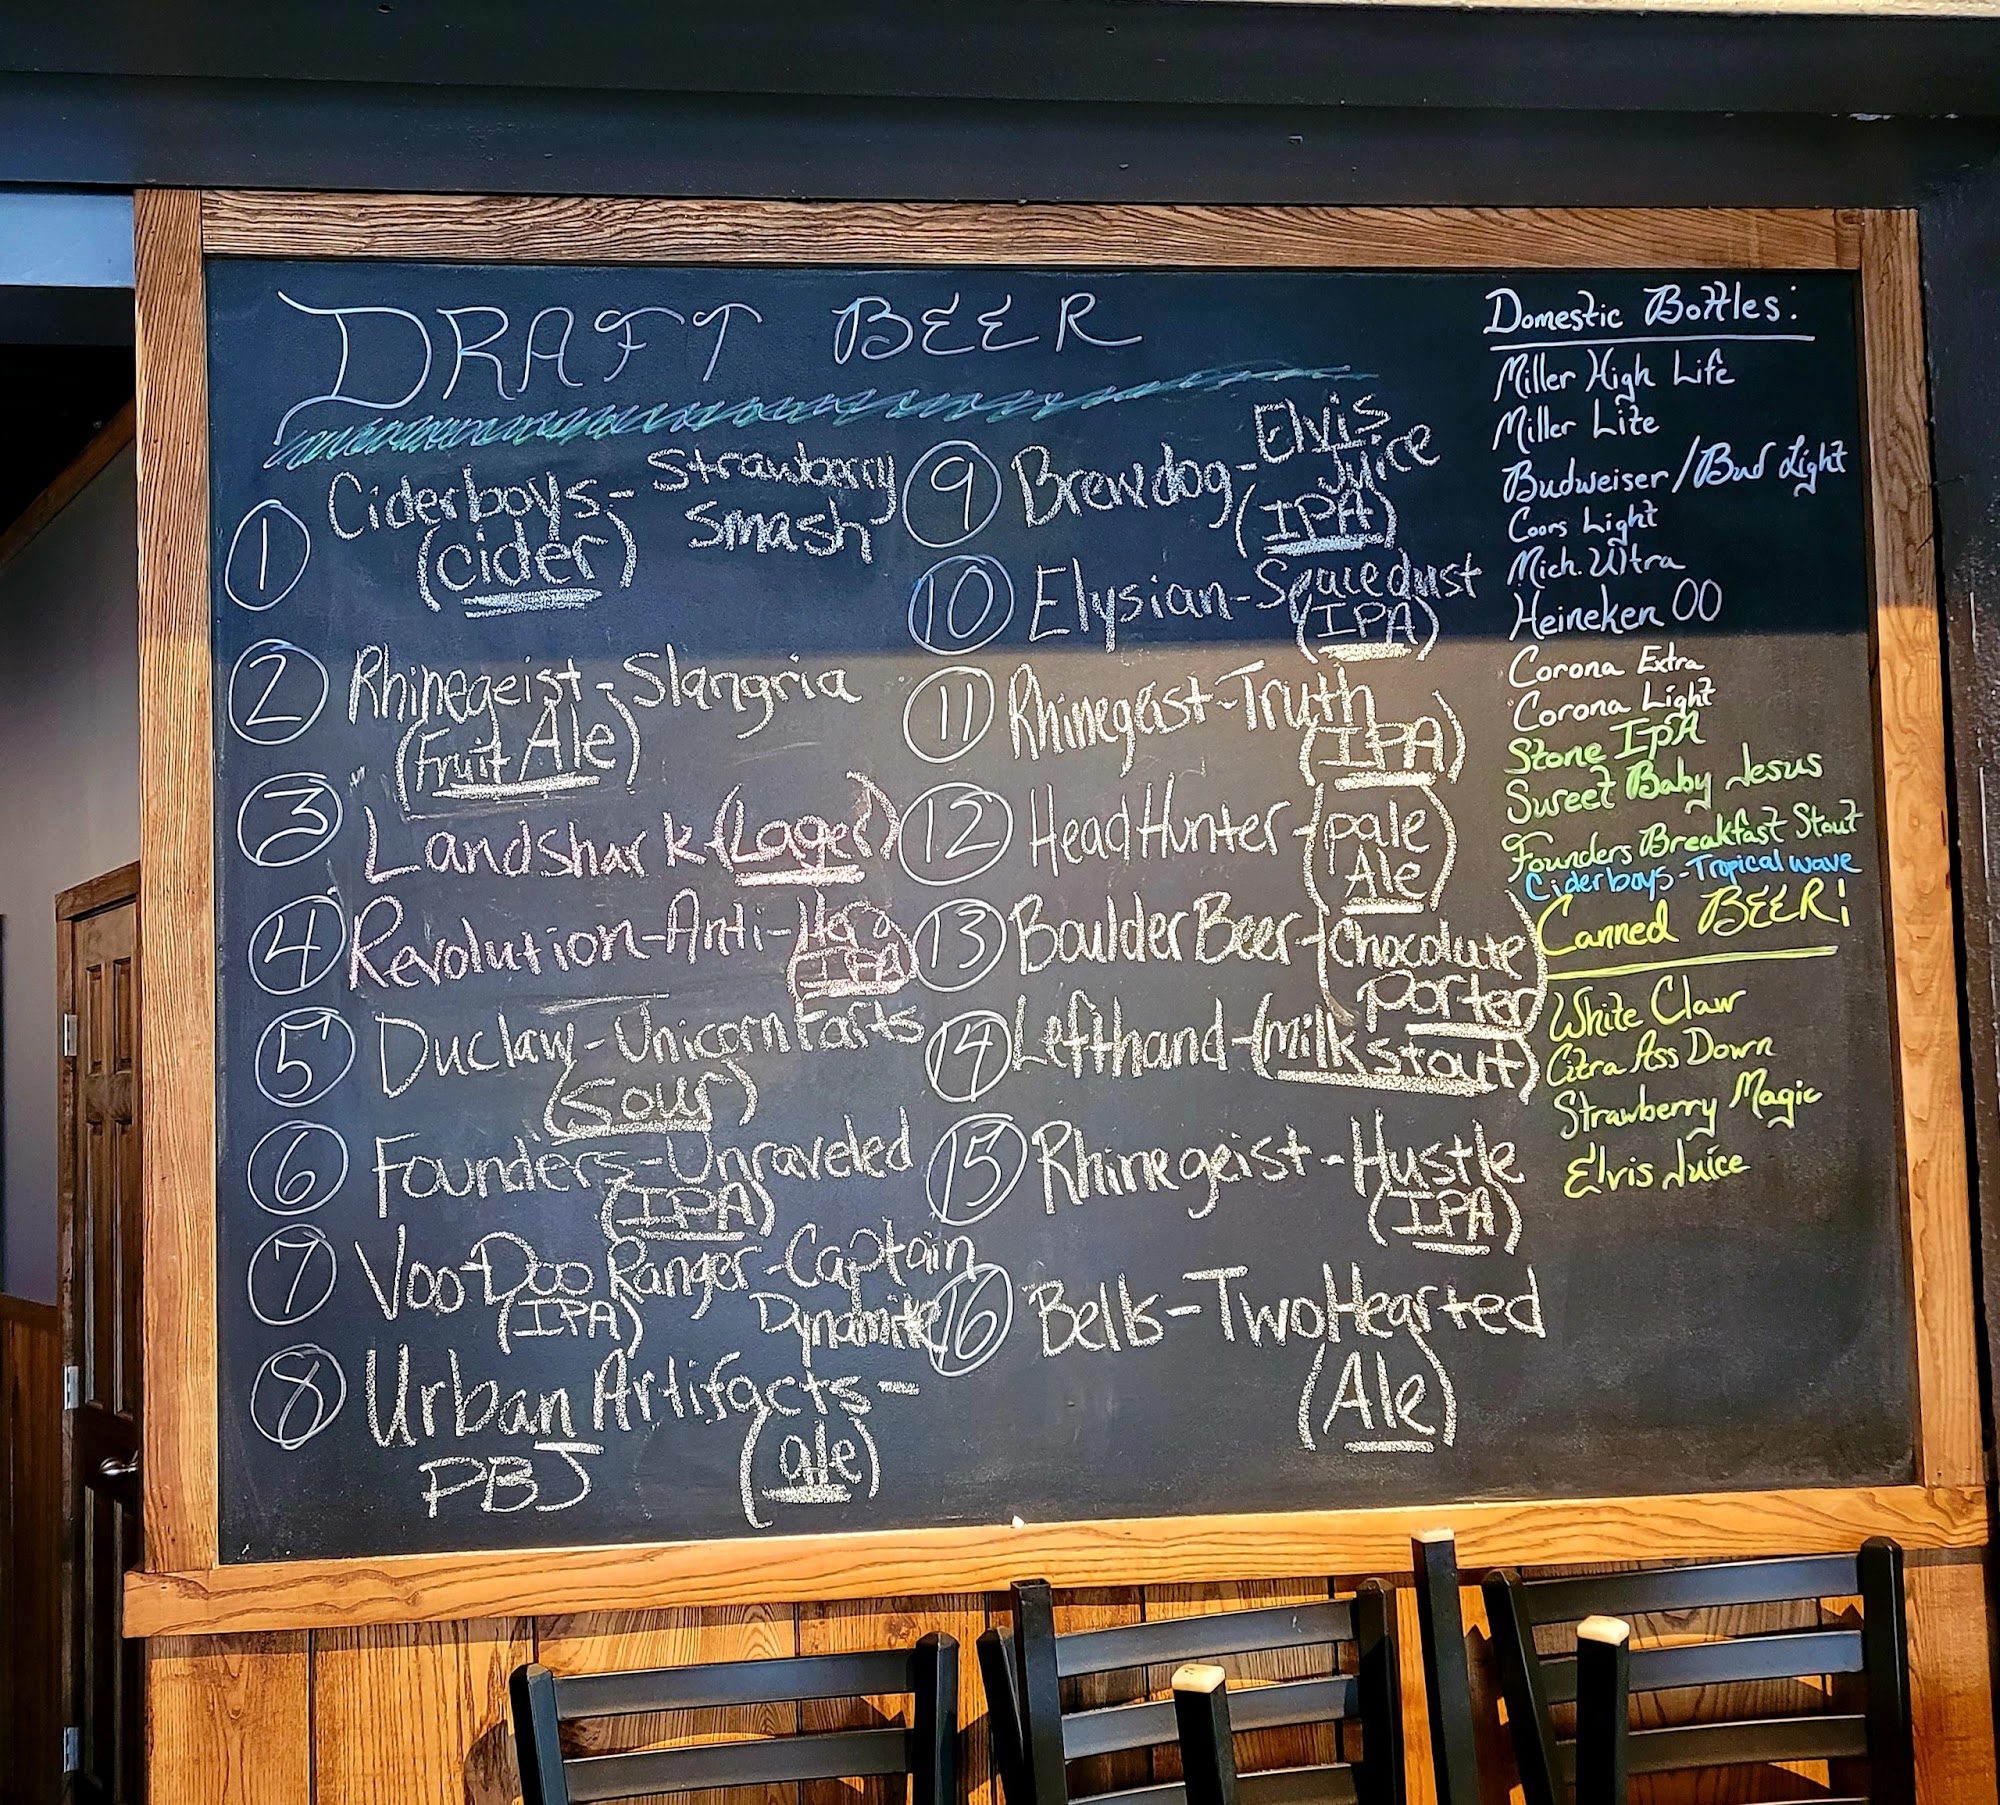 DRAFT BEER
1 Ciderboys- Strawberry Smash
(cider)
2 Rhinegeist-Slangria
(Fruit Ale)
3 Landshark-(Lager)
4 Revolution-Anti-Hero
(IPA)
5 Duclaw-Unicorn Farts
(Sour)
6 Founders-Unraveled
(IPA)
7 Voo-Doo Ranger-Captain
(IPA) Dynamite
8 Urban Artifacts-
PBJ (ale)
9 Brewdog-Elvis Juice
(IPA)
10 Elysian-Spacedust
(IPA)
11 Rhinegeist-Truth
(IPA)
12 Head Hunter-(pale
Ale)
13 Boulder Beer-(Chocolate
Porter)
14 Lefthand-(milk stout)
15 Rhinegeist-Hustle
(IPA)
16 Bells-Two Hearted
(Ale)
Domestic Bottles:
Miller High Life
Miller Lite
Budweiser/Bud Light
Coors Light
Mich. Ultra
Heineken 00
Corona Extra
Corona Light
Stone IPA
Sweet Baby Jesus
Founders Breakfast Stout
Ciderboys-Tropical wave
Canned BEER!
White Claw
Citra Ass Down
Strawberry Magic
Elvis Juice